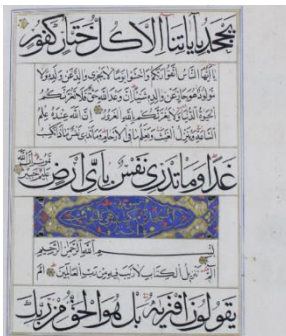 يجحد بآياتنا الا كل ختار كفور
يا ايها الناس اتقوا ربكم واخشوا يوما لا يجزى والد عن ولده ولا
مولود هو جاز عن والده شيئا ان وعد الله حق فلا تغرنكم
الحيوة الدنيا ولا يغرنكم بالله الغرور ان الله عنده علم
الساعة وينزل الغيث ويعلم ما فى الارحام وما تدرى نفس ماذا تكسب
غدا وما تدرى نفس باى ارض تموت ان الله عليم خبير
بسم الله الرحمن الرحيم
الم تنزيل الكتاب لا ريب فيه من رب العالمين ام
يقولون افتريه بل هو الحق من ربك